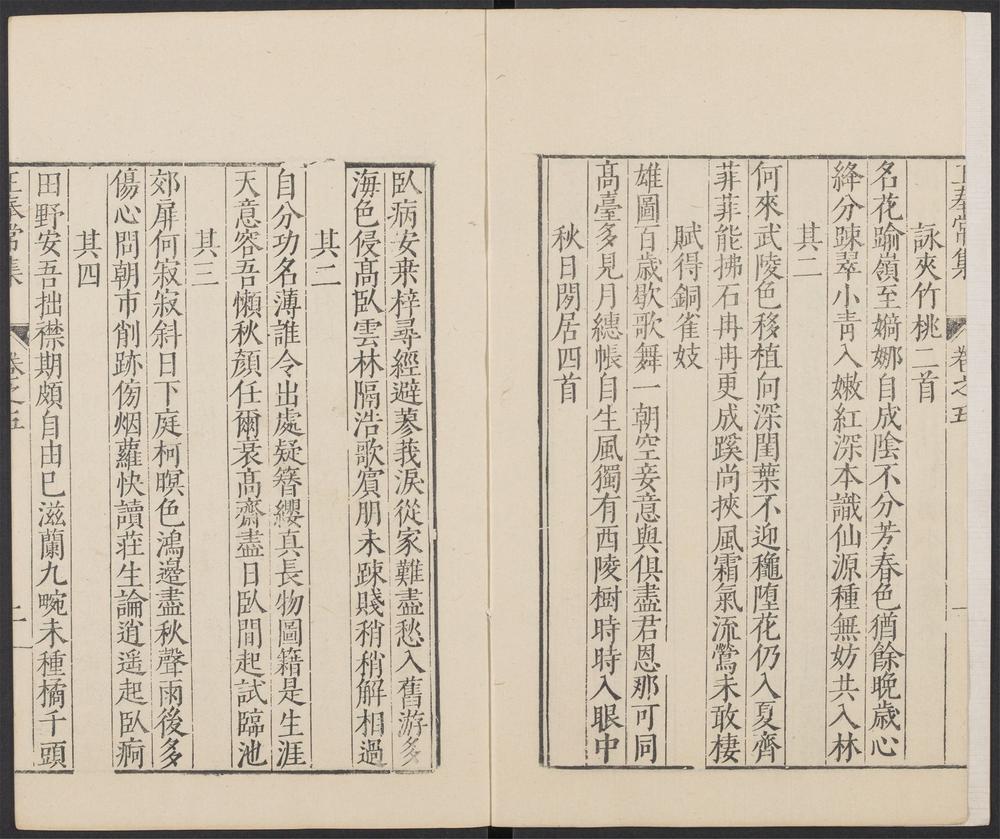 王奉常集 卷之五 一
詠夾竹桃二首
名花踰嶺至嫷娜自成陰不分芳春色猶餘晚歲心
絳分踈翠小青入嫩紅深本識仙源種無妨共入林
其二
何來武陵色移植向深閨葉不迎穐墮花仍入夏齊
菲菲能拂石冉冉更成蹊尚挾風霜氣流鶯未敢棲
賦得銅雀妓
雄圖百歲歇歌舞一朝空妾意與俱盡君恩那可同
髙臺多見月繐帳自生風獨有西陵樹時時入眼中
秋日閒居四首
臥病安桒梓尋經避蓼莪淚從家難盡愁入舊游多
海色侵髙臥雲林隔浩歌賔朋未踈賤稍稍解相過
其二
自分功名薄誰令出處疑簪纓真長物圖籍是生涯
天意容吾懶秋顔任爾衰髙齋盡日臥間起試臨池
其三
郊扉何寂寂斜日下庭柯暝色鴻邊盡秋聲雨後多
傷心問朝市削跡傍烟蘿快讀莊生論逍遥起臥痾
其四
田野安吾拙襟期頗自由巳滋蘭九畹未種橘千頭
王奉常集 卷之五 二